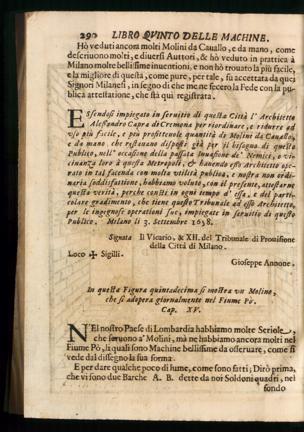 290 LIBRO QVINTO DELLE MACHINE.
Hò veduti ancora molti Molini da Cauallo, e da mano, come
descriuono molti, e diuersi Auttori, & hò veduto in prattica à
Milano molte bellissime inuentioni, e non hò trouato la più facile,
e la migliore di questa, come pure, per tale, fu accettata da queì
Signori Milanesi, in segno di che me ne fecero la Fede con la pu-
blica attestatione, che stà quì registrata.
ESsendosi impiegato in seruitio di questa Città l'Architetto
Alessandro Capra di Cremona per riordinare, e ridurre ad
vso più facile, e più profitteuole quantità di Molini da Cauallo,
e da mano, che restauano disposti già per il bisogno di questo
Publico, nell'occasione della passata Inuasione de' Nemici, a vi-
cinanza loro à questa Metropoli, & hauendo esso Architetto ope-
rato in tal facenda con molta vtilità publica, e nostra non ordi-
naria soddisfattione, habbiamo voluto, con il presente, attestare
questa verità, perche conste in ogni tempo d'essa, e del parti-
colare gradimento, che tiene questo Tribunale ad esso Architetto,
per le ingegnose operationi sue, impiegate in seruitio di questo
Publico. Milano li 3. Settembre 1658.
Signata Il Vicario, & XII. del Tribunale di Prouisione
della Città di Milano.
Loco ✠ Sigilli.
Gioseppe Annone.
In questa Figura quintadecima si mostra vn Molino,
che si adopera giornalmente nel Fiume Pò.
Cap. XV.
NEl nostro Paese di Lombardia habbiamo molte Seriole,
che seruono a' Molini, mà ne habbiamo ancora molti nel
Fiume Pò, li quali sono Machine bellissime da osseruare, come si
vede dal dissegno la sua forma.
E per dare qualche poco di lume, come sono fatti; Dirò prima,
che vi sono due Barche A. B. dette da noi Soldoni quadri, nel
fondo